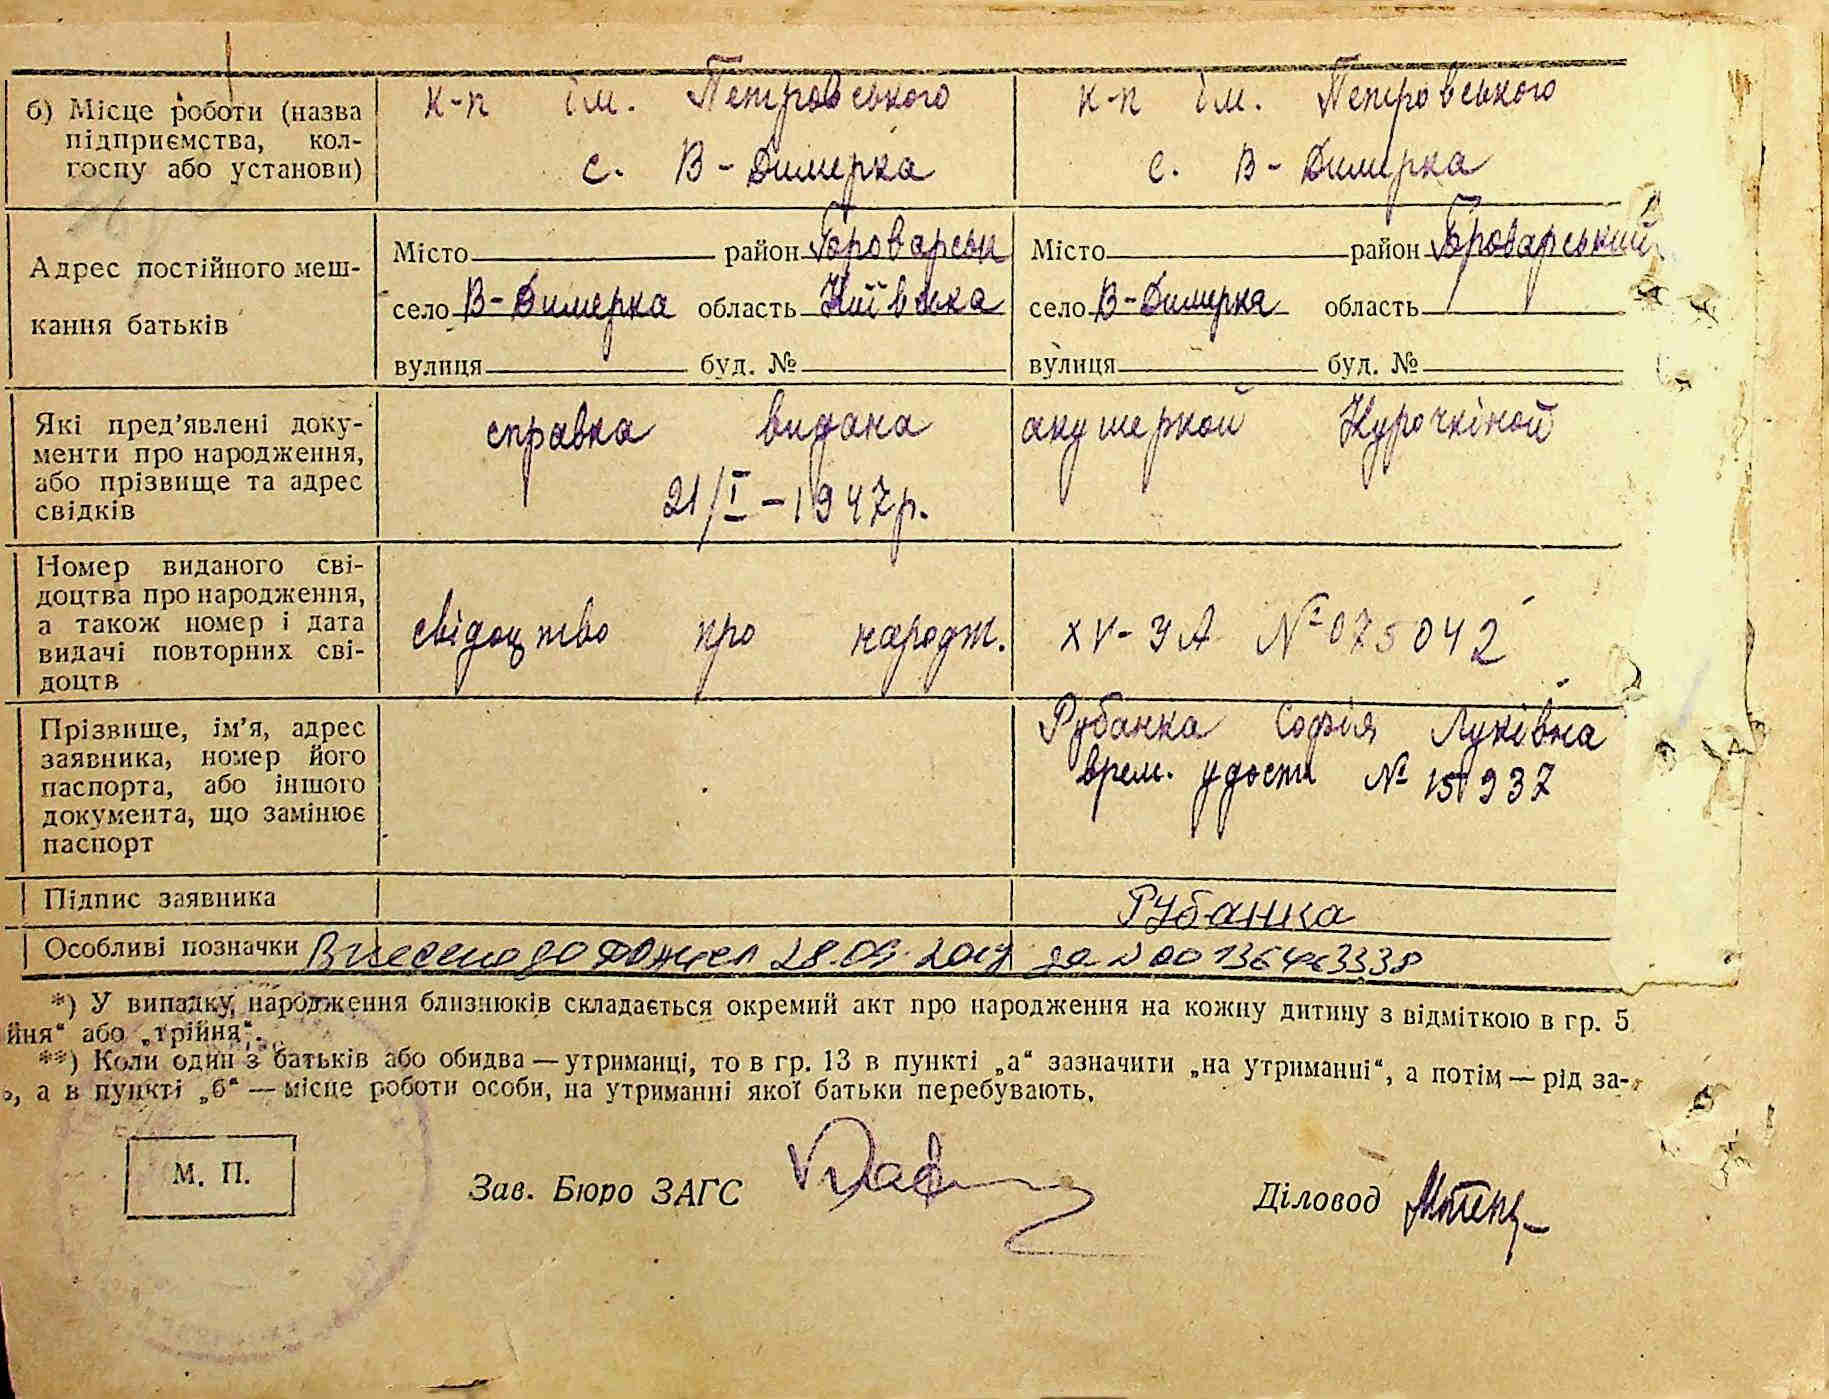 б) Місце роботи (назва
підприємства, кол-
госпу або установи)
к-п ім. Петровського
с. В-Димерка
к-п ім. Петровського
с. В-Димерка
Адрес постійного меш-
кання батьків
Місто район Броварськ
село В-Димерка область Київська
вулиця буд. №
Місто район Броварський
село В-Димерка область
вулиця буд. №
Які пред'явлені доку-
менти про народження,
або прізвище та адрес
свідків
справка видана акушеркой Курочкіной
21/I-1947р.
Номер виданого сві-
доцтва про народження,
а також номер і дата
видачі повторних сві-
доцтв
свідоцтво про народж. XV-УА № 075042
Прізвище, ім'я, адрес
заявника, номер його
паспорта, або іншого
документа, що замінює
паспорт
Рубанка Софія Луківна
врем. удост №
Підпис заявника
Рубанка
Особливі позначки Внесено до 28.09. за N
*) У випадку народження близнюків складається окремий акт про народження на кожну дитину з відміткою в гр. 5
йня" або „трійня".
**) Коли один з батьків або обидва — утриманці, то в гр. 13 в пункті „а" зазначити „на утриманні", а потім — рід за-
ь, а в пункті „б" — місце роботи особи, на утриманні якої батьки перебувають.
М. П.
Зав. Бюро ЗАГС
Діловод